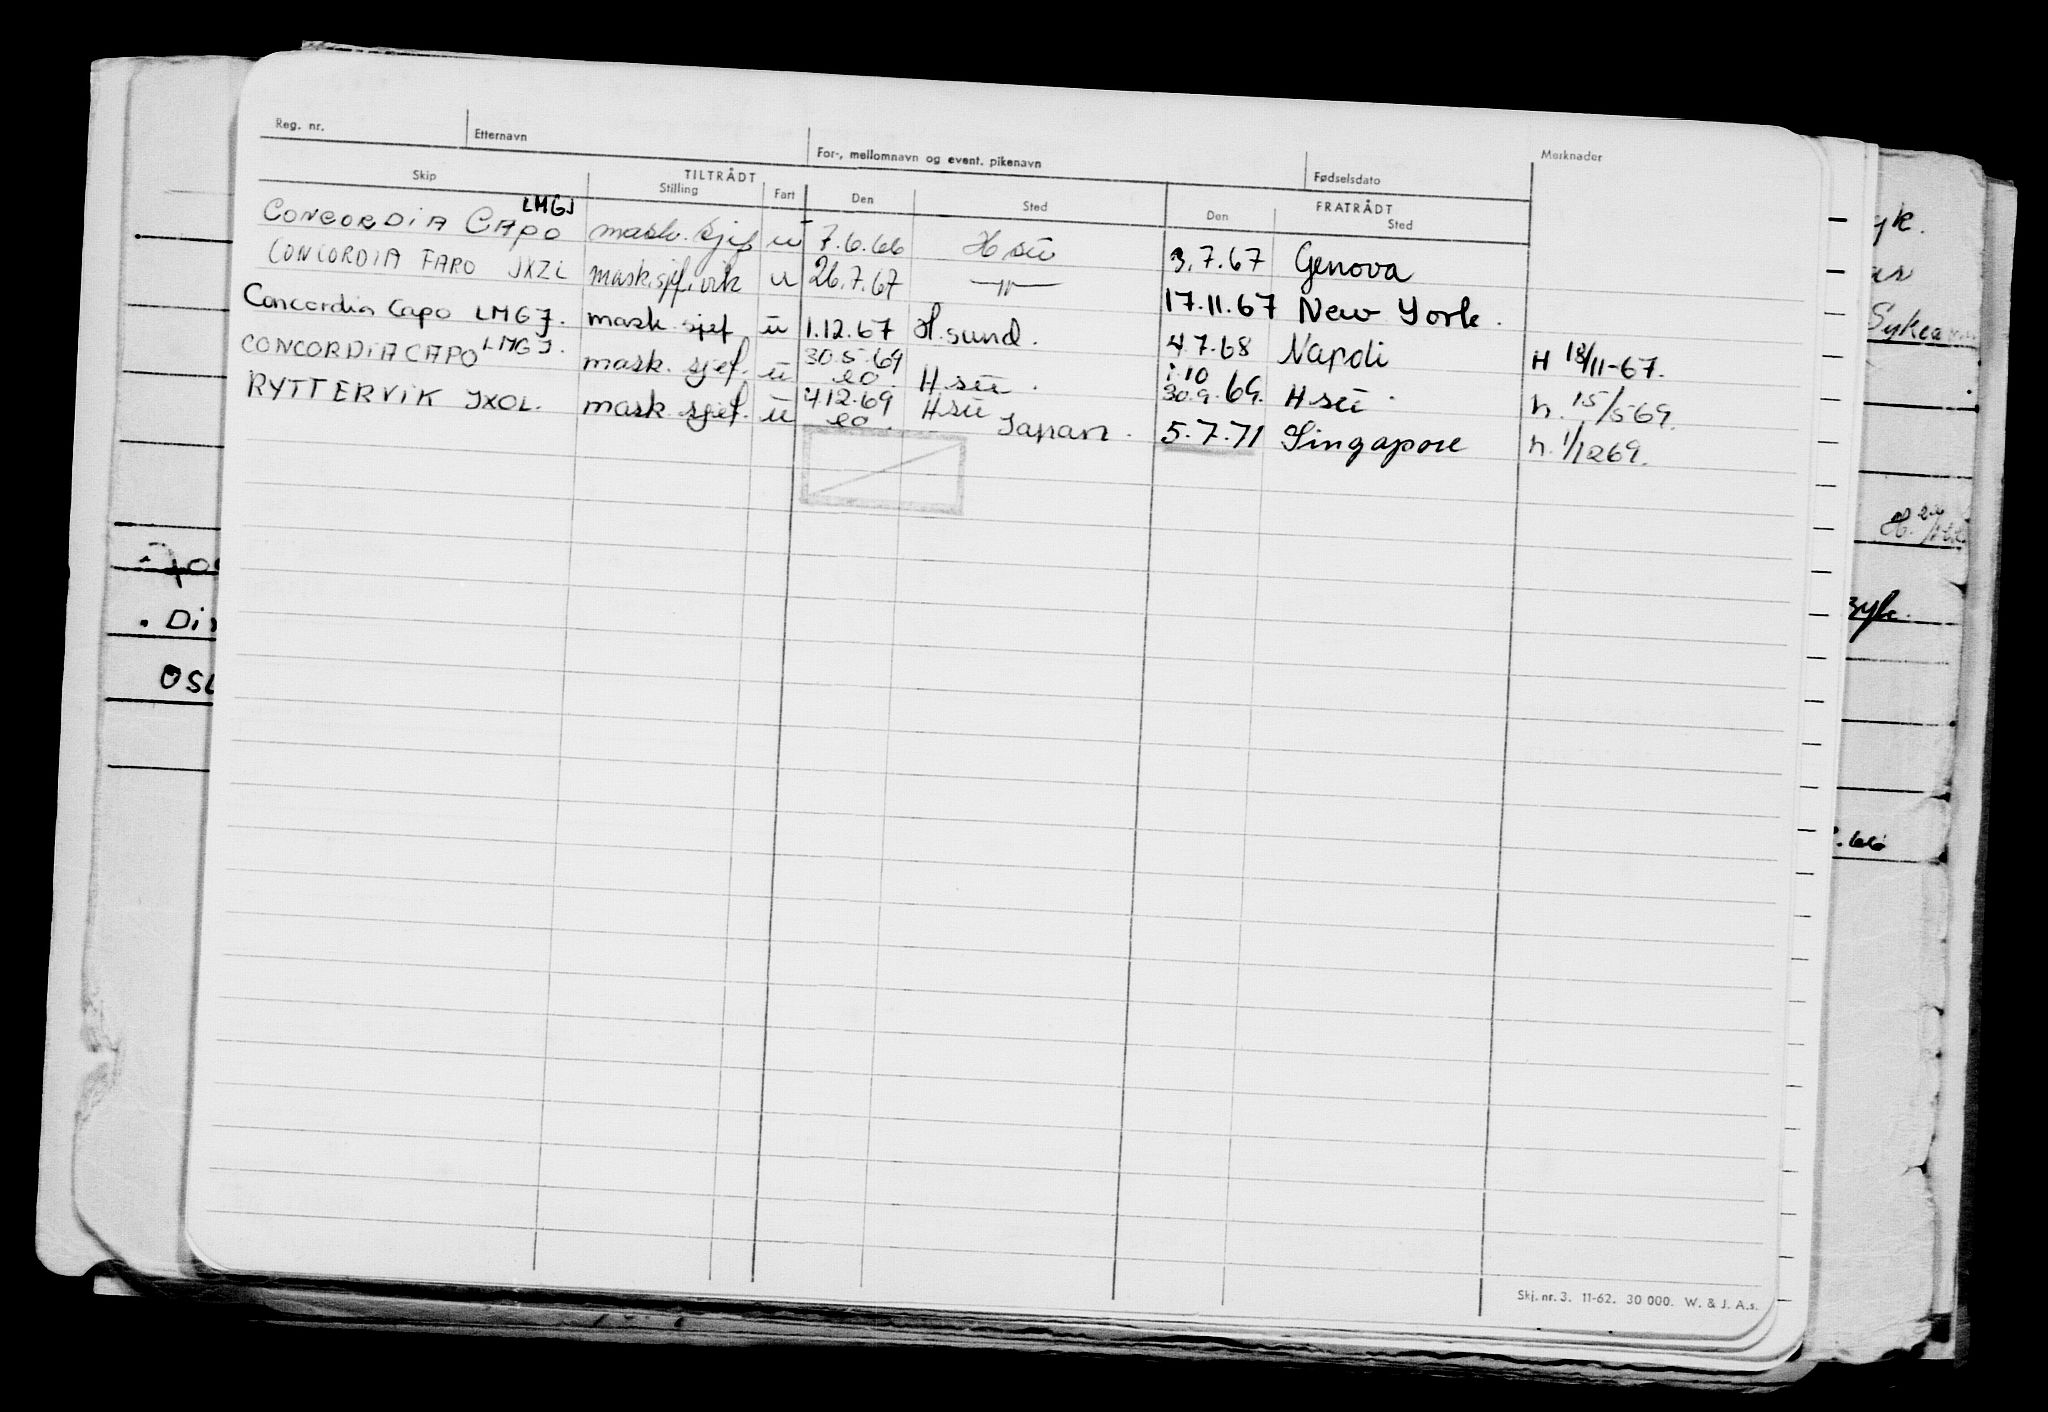 Reg. nr. Etternavn For-, mellomnavn og event. pikenavn Fødselsdato Merknader
Skip TILTRÅDT FRATRÅDT
Stilling Fart Den Sted Den Sted
CONCORDIA CAPO LMGJ mask. sjef ū 7.6.66 H sū 3.7.67 Genova
CONCORDIA FARO JXZL mask.sjef.vik u 26.7.67 —"— 17.11.67 New York.
Concordia Capo LMGJ. mask. sjef ū 1.12.67 H.sund. 4.7.68 Napoli H 18/11-67.
CONCORDIA CAPO LMGJ. mask. sjef. ū 30.5.69 eo. H sū. 1.10 30.9.69. H sū. h. 15/5 69.
RYTTERVIK JXOL. mask sjef. ū 4.12.69 eo. H sū Japan. 5.7.71 Singapore h. 1/12 69.
Skj. nr. 3. 11-62. 30 000. W. & J. A.s.
OSL